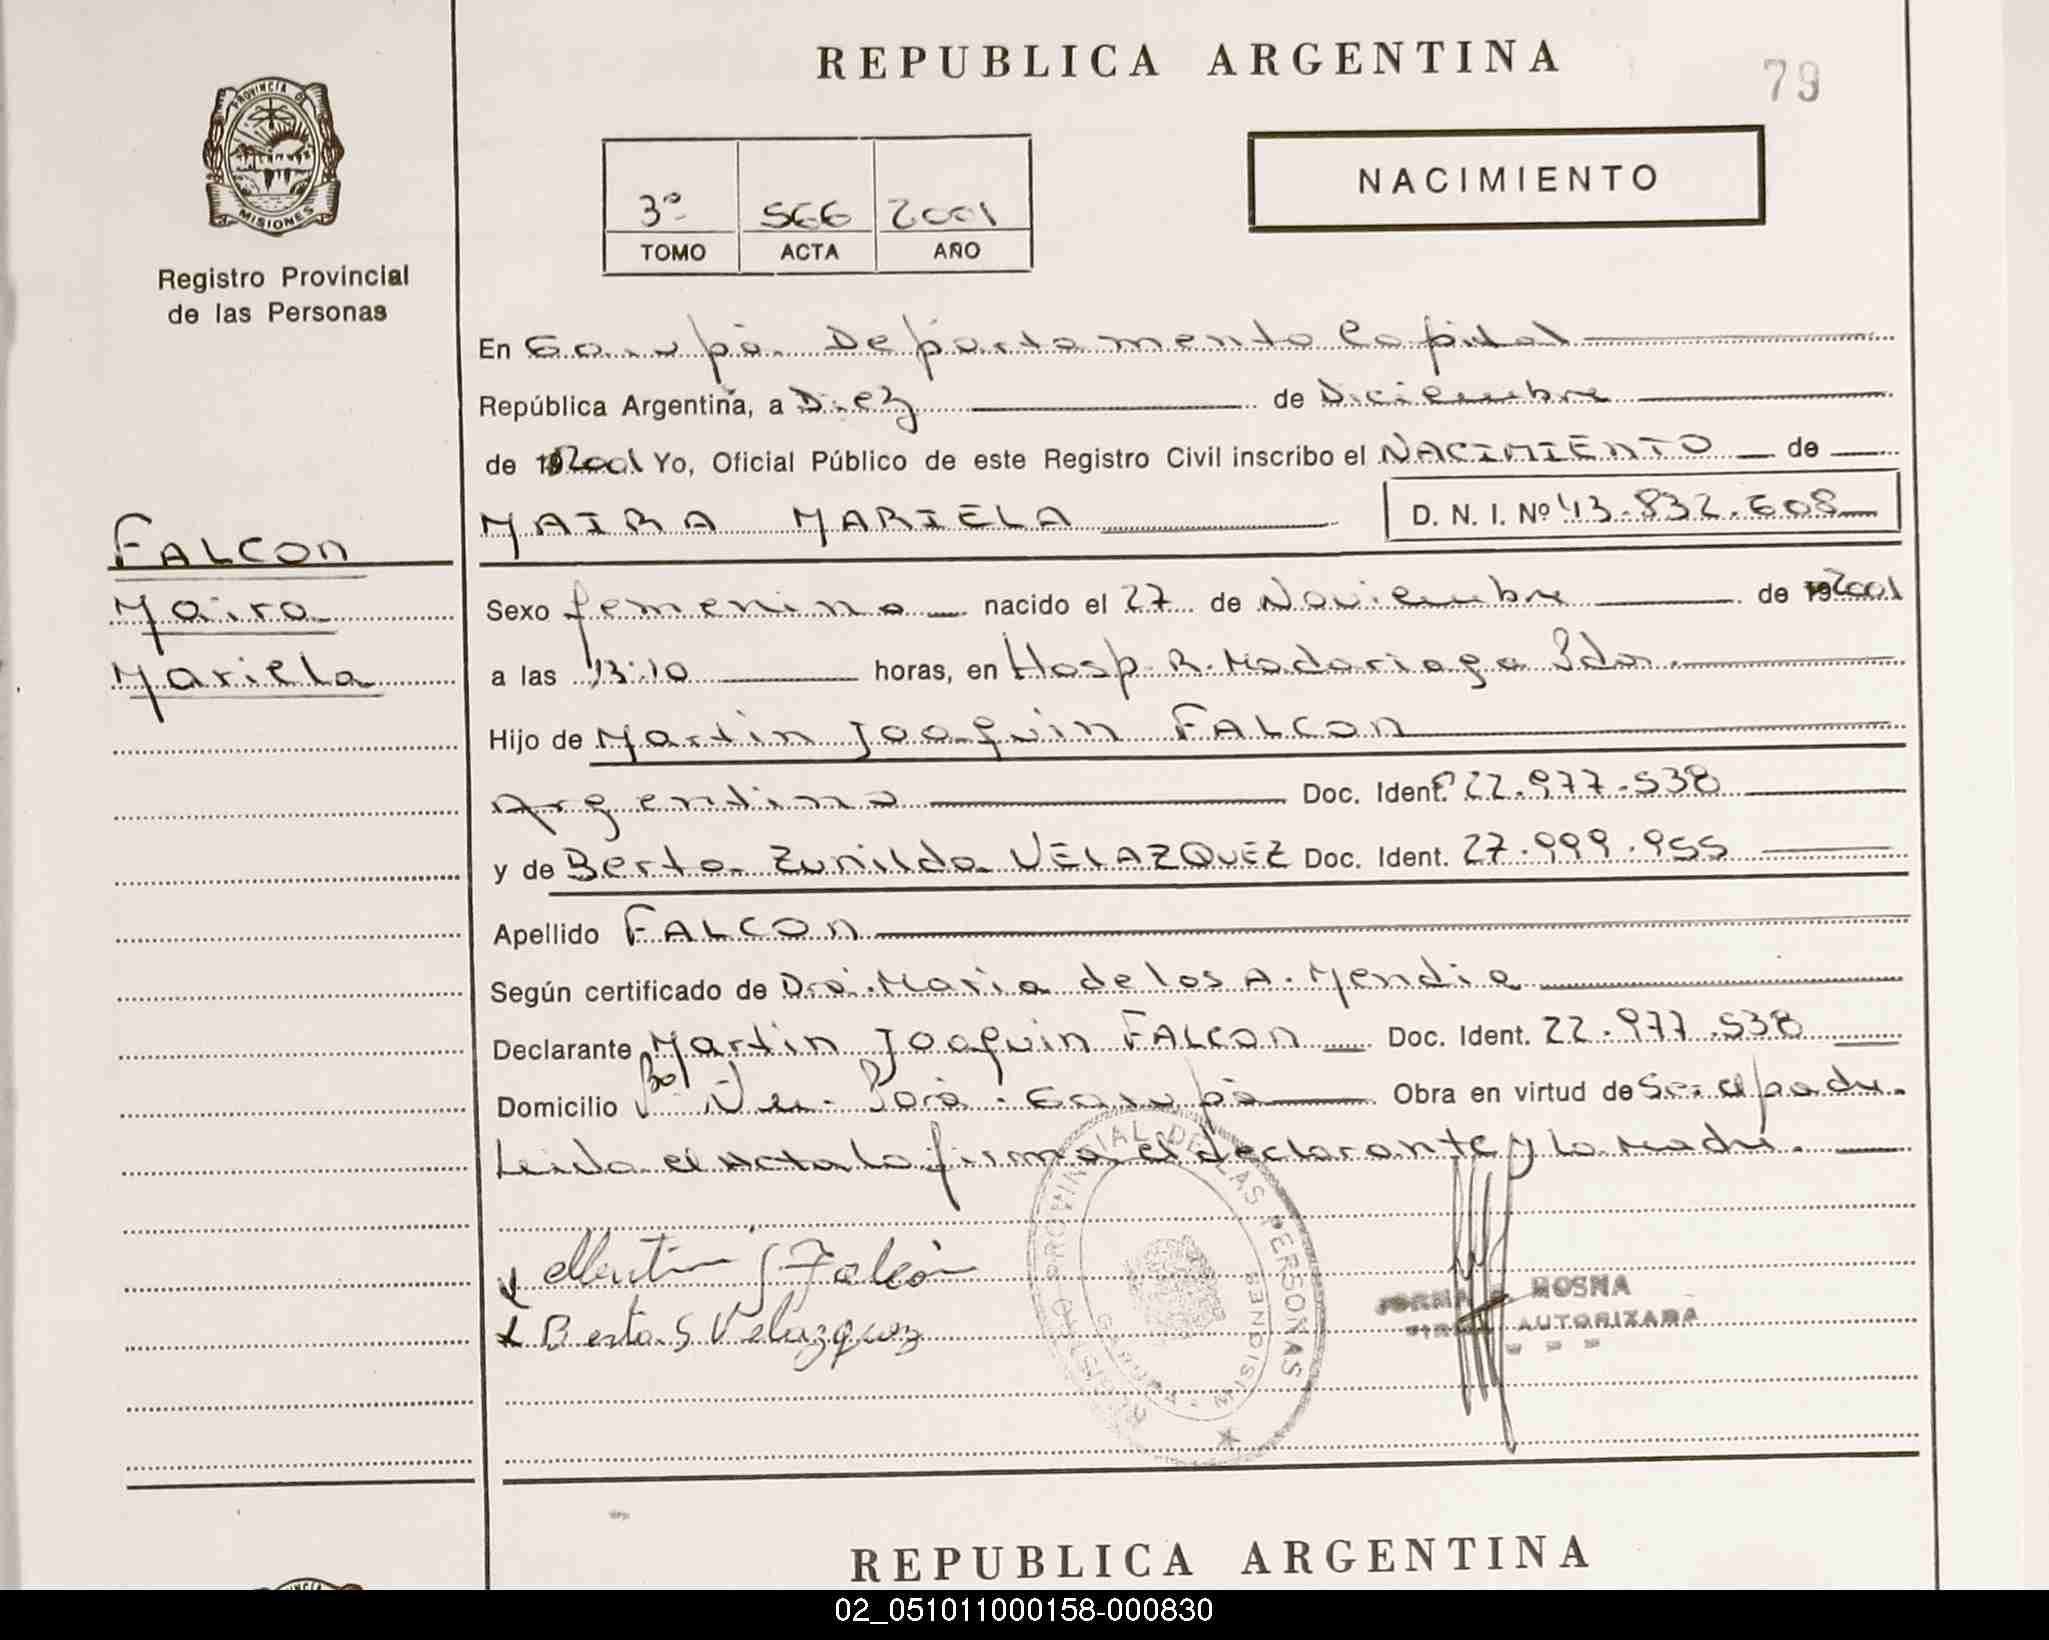 REPUBLICA ARGENTINA
79
PROVINCIA DE
MISIONES
Registro Provincial
de las Personas
NACIMIENTO
3º 566 2001
TOMO ACTA AÑO
En Garupá Departamento Capital
República Argentina, a Diez de Diciembre
de 2001 Yo, Oficial Público de este Registro Civil inscribo el NACIMIENTO de
MAIRA MARIELA D. N. I. Nº 43.832.608
FALCON
Maira
Mariela
Sexo femenino nacido el 27 de Noviembre de 2001
a las 13:10 horas, en Hosp. R. Madariaga Pdas.
Hijo de Martin Joaquin FALCON
Argentino Doc. Ident. 22.977.538
y de Berta Zunilda VELAZQUEZ Doc. Ident. 27.999.955
Apellido FALCON
Según certificado de Dra. Maria de los A. Mendie
Declarante Martin Joaquin FALCON Doc. Ident. 22.977.538
Domicilio Bº Ñu Porá. Garupá Obra en virtud de Ser el padre.
Leida el Acta la firma el declarante y la Madre.
Martin J Falcón
Berta S Velazquez
REGISTRO PROVINCIAL DE LAS PERSONAS
MISIONES
MOSNA
FIRMA AUTORIZADA
REPUBLICA ARGENTINA
02_051011000158-000830